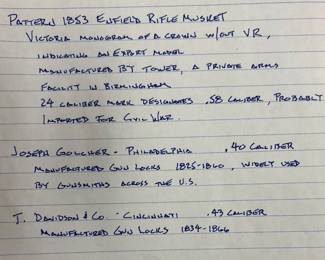 PATTERN 1853 ENFIELD RIFLE MUSKET
VICTORIA MONOGRAM OF A CROWN W/OUT VR,
INDICATING AN EXPORT MODEL
MANUFACTURED BY TOWER, A PRIVATE ARMS
FACILITY IN BIRMINGHAM
24 CALIBER MARK DESIGNATES .58 CALIBER, PROBABLY
IMPORTED FOR CIVIL WAR.
JOSEPH GOLCHER - PHILADELPHIA .40 CALIBER
MANUFACTURED GUN LOCKS 1825-1860, WIDELY USED
BY GUNSMITHS ACROSS THE U.S.
J. DAVIDSON & CO. - CINCINNATI .43 CALIBER
MANUFACTURED GUN LOCKS 1834-1866